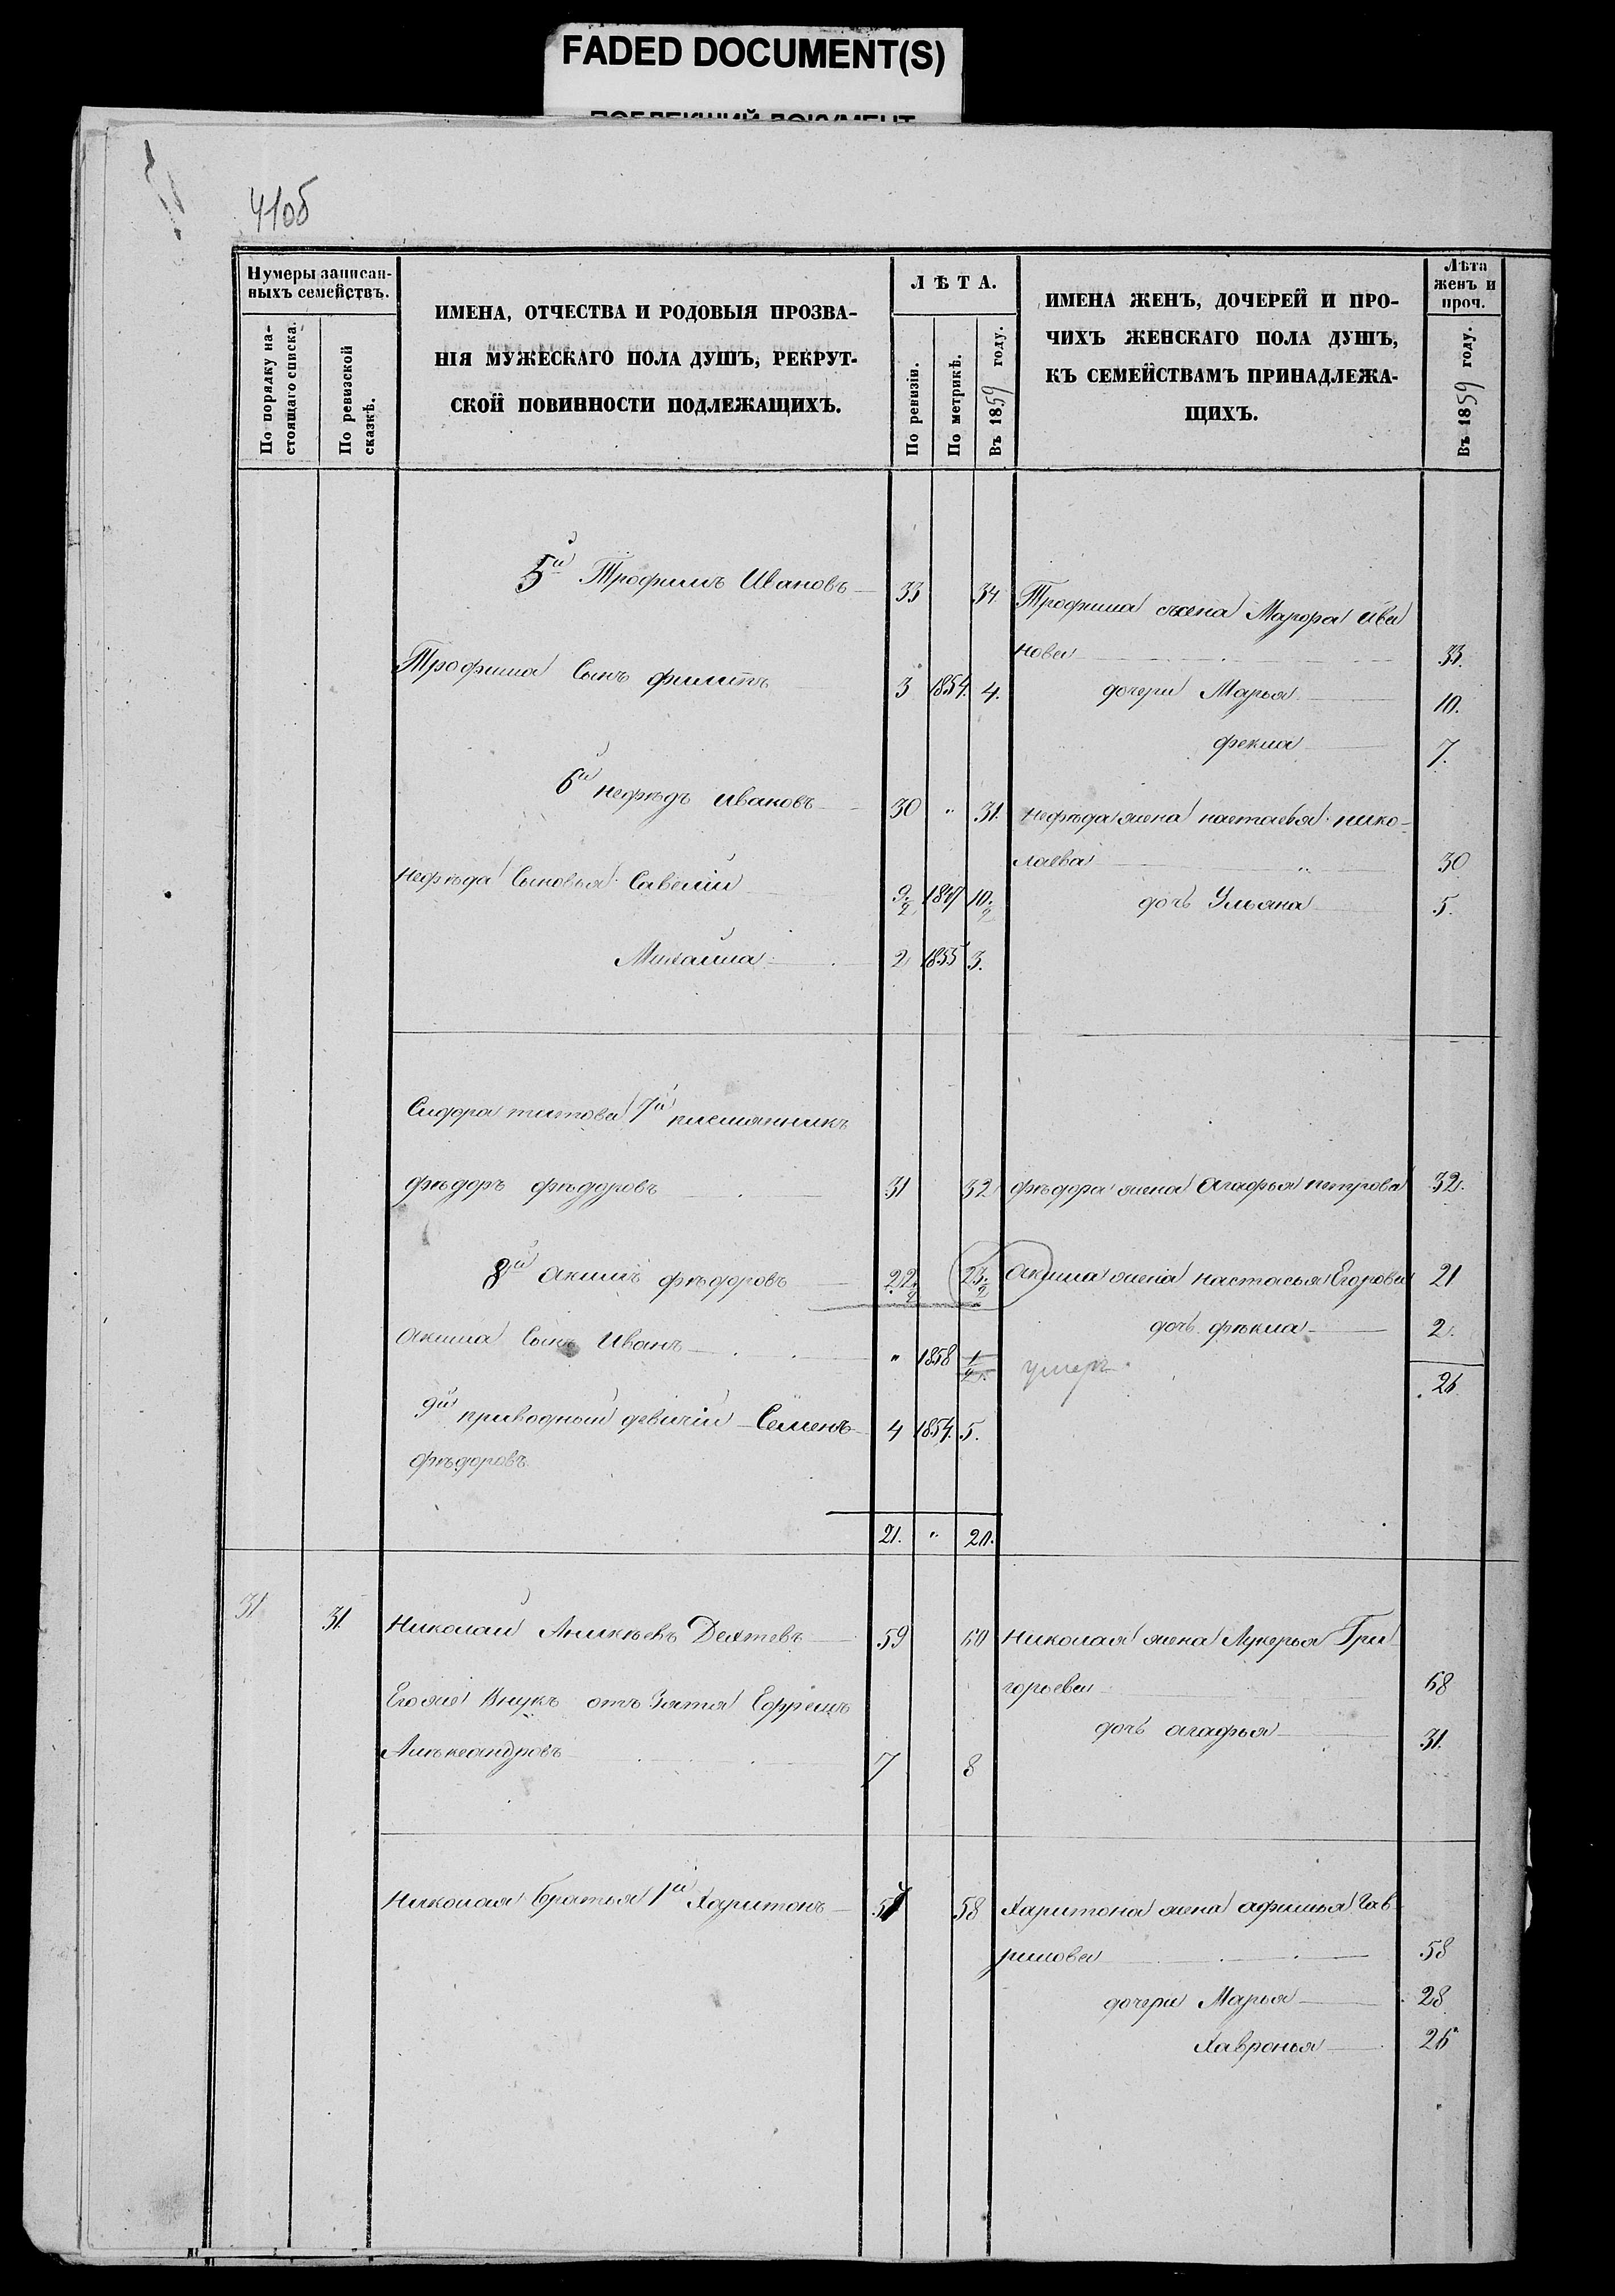 FADED DOCUMENT(S)
ПОБЛЕКШИЙ ДОКУМЕНТ
41об
Нумеры записан-
ныхъ семействъ.
По порядку на-
стоящаго списка.
По ревизской
сказкѣ.
ИМЕНА, ОТЧЕСТВА И РОДОВЫЯ ПРОЗВА-
НІЯ МУЖЕСКАГО ПОЛА ДУШЪ, РЕКРУТ-
СКОЙ ПОВИННОСТИ ПОДЛЕЖАЩИХЪ.
ЛѢТА.
По ревизіи.
По метрикѣ.
Въ 1859 году.
ИМЕНА ЖЕНЪ, ДОЧЕРЕЙ И ПРО-
ЧИХЪ ЖЕНСКАГО ПОЛА ДУШЪ,
КЪ СЕМЕЙСТВАМЪ ПРИНАДЛЕЖА-
ЩИХЪ.
Лѣта
женъ и
проч.
Въ 1859 году.
5й Трофимъ Ивановъ 33 34 Трофима жена Марфа ива
нова 33.
Трофима Сынъ филипъ 3 1854. 4. дочери Марья 10.
фекла 7.
6й нефѣдъ ивановъ 30 " 31. нефѣда жена настасья нико-
лаева " 30
нефѣда Сыновья Савелій 9 1/2 1849 10 1/2 дочь Ульяна 5.
Михайла 2 1855 3.
Сидора титова 7й племянникъ
фѣдоръ фѣдоровъ 31 32 фѣдора жена Агафья петрова 32.
8й Акимъ фѣдоровъ 22 1/2 23 1/2 Акима жена настасья Егорова 21
дочь фѣкла 2.
Акима Сынъ Иванъ " 1858 1/2 умеръ
26
9й приводный девичій Семенъ 4 1854. 5.
фѣдоровъ
21. " 20.
31 31. Николай Аникѣевъ Дехтевъ 59 60 Николая жена Лукерья Гри
горьева 68
Его же Внукъ отъ Зятя Ефремъ
дочь агафья 31.
Алѣксандровъ 7 8
Николая братья 1й Харитонъ 57 58 Харитона жена афимья Гав
рилова 58
дочери Марья 28
Хавронья 26